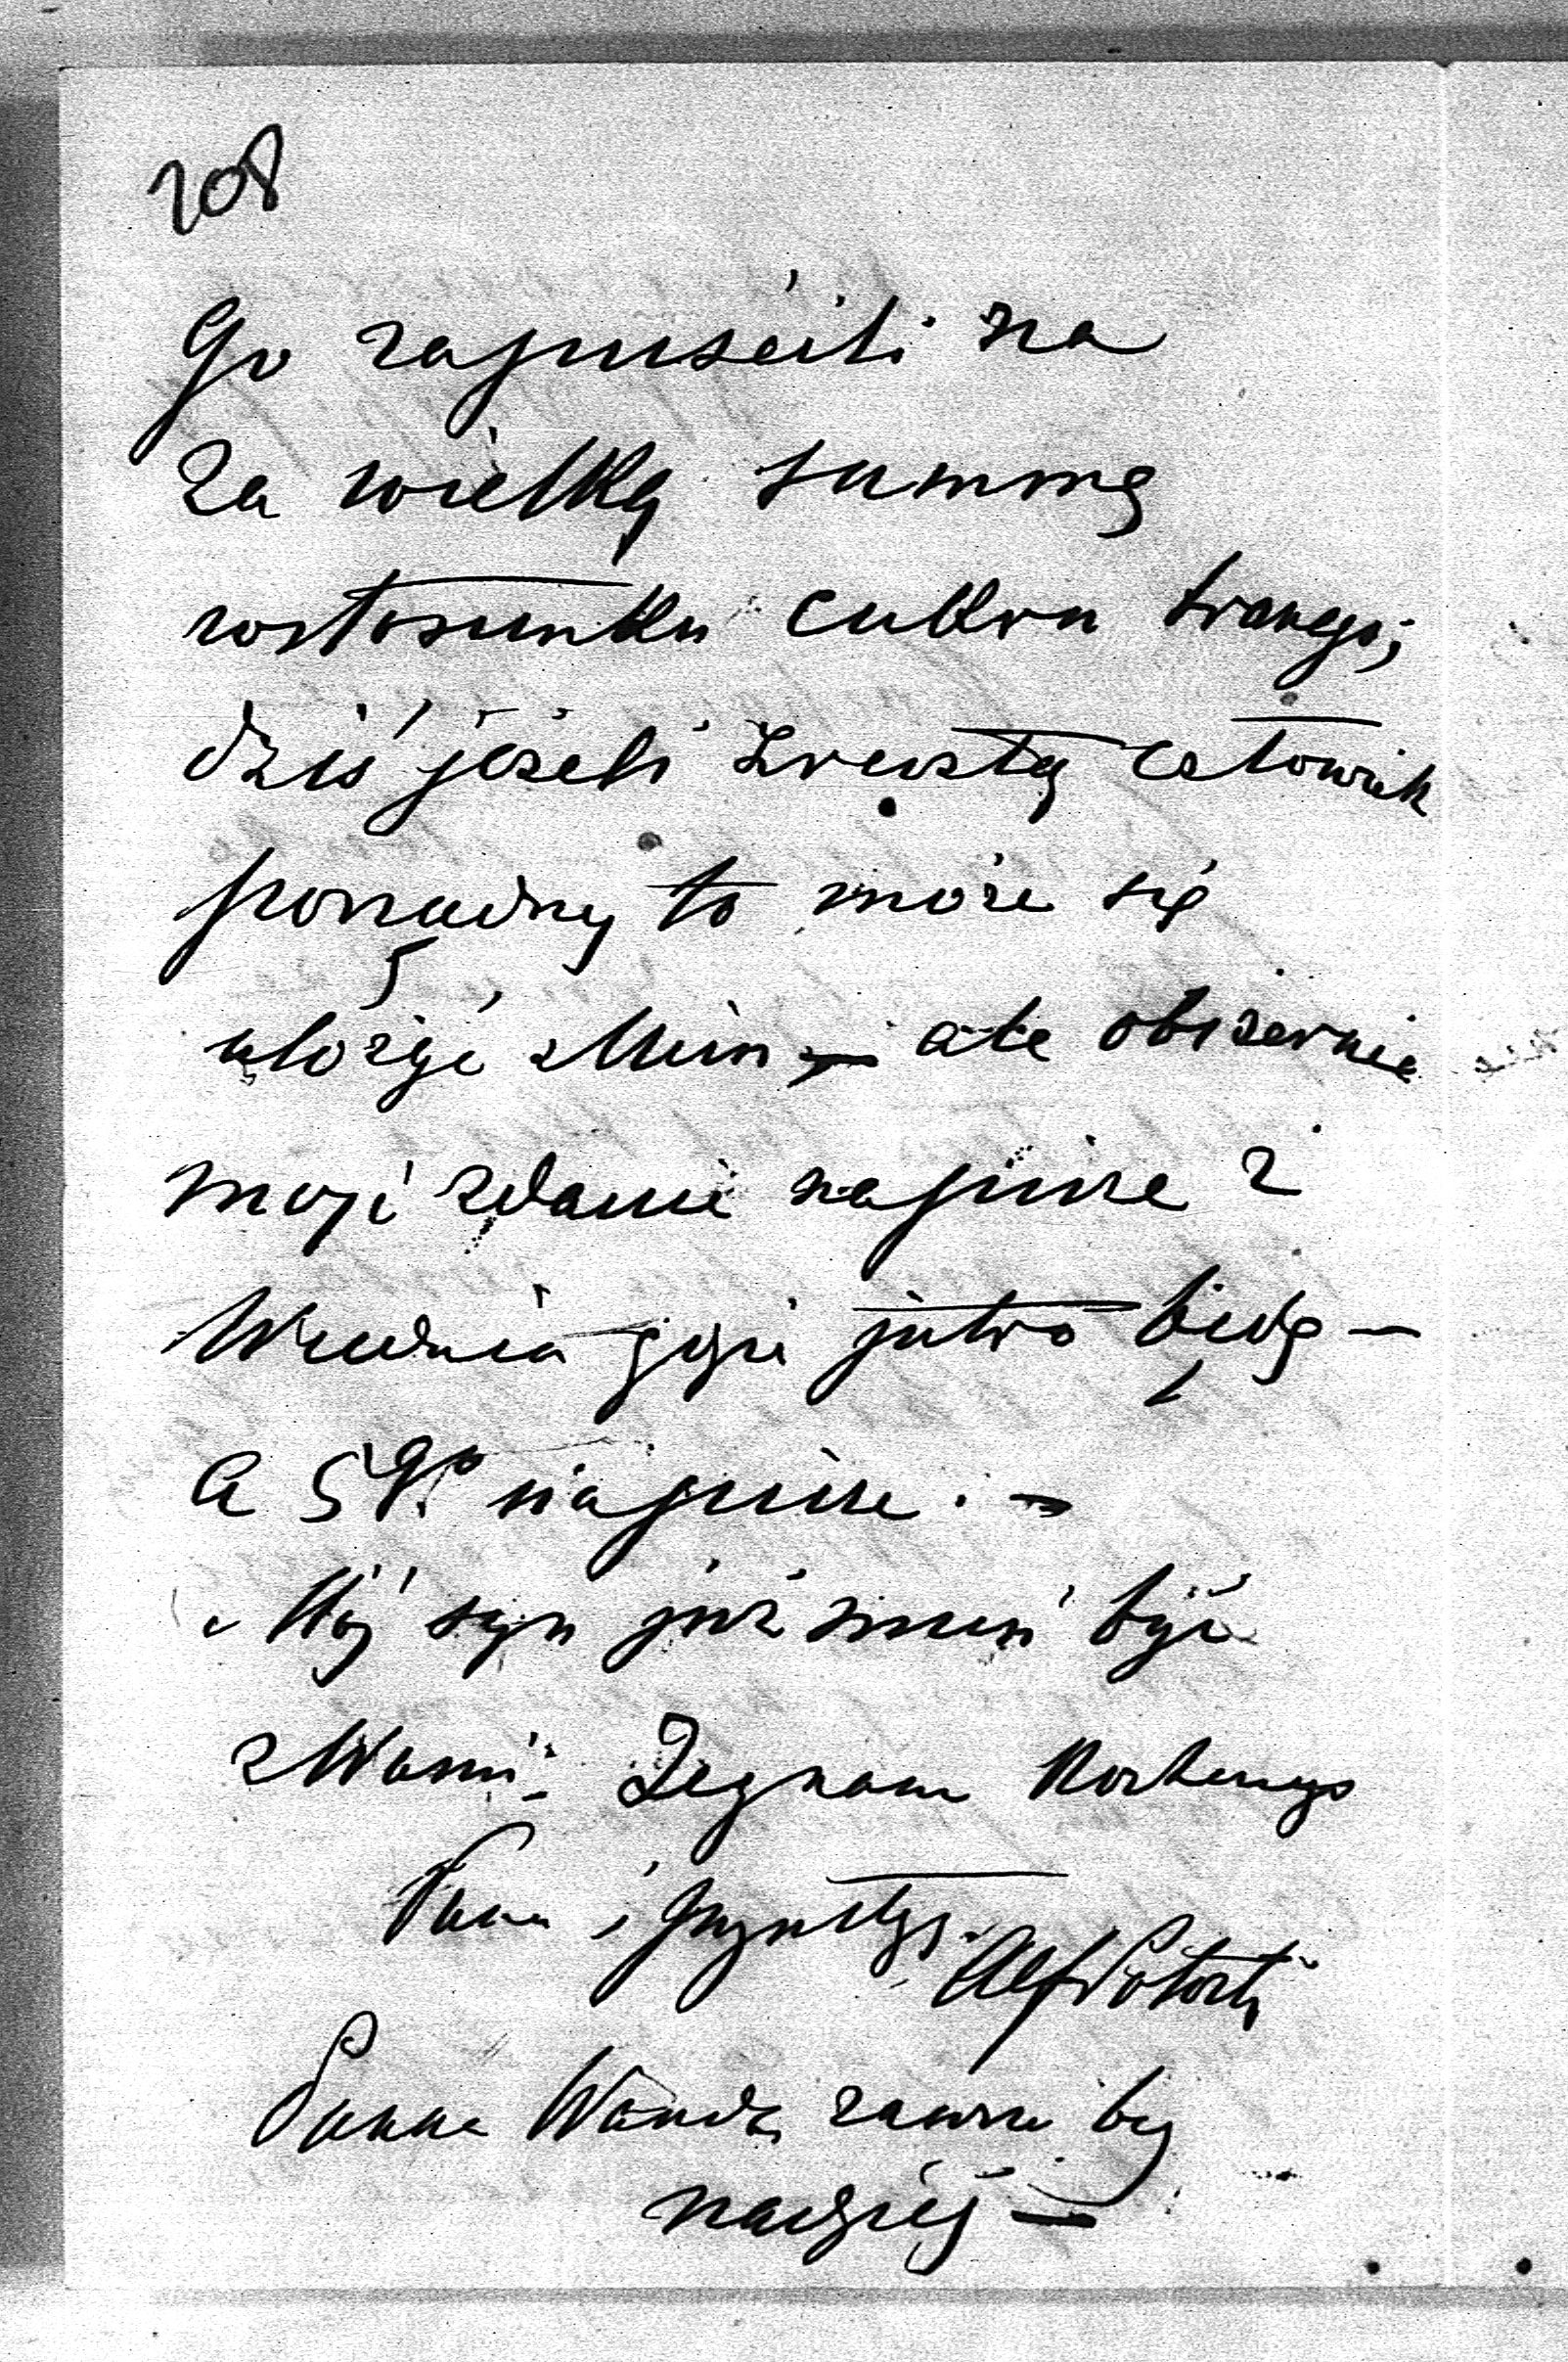 208
Go zapuścili na
Za wielką summę
w stosunku cukru
dziś jeżeli zresztą człowiek
porządny to może się
ułożyć z Nim — ale obszernie
moje zdanie napiszę z
Wiednia gdzie jutro będę —
a 5go napiszę. —
Mój syn już musi być
z Wami. Żegnam Kochanego
Pana i
Alf Potocki
Panna Wanda zawsze by